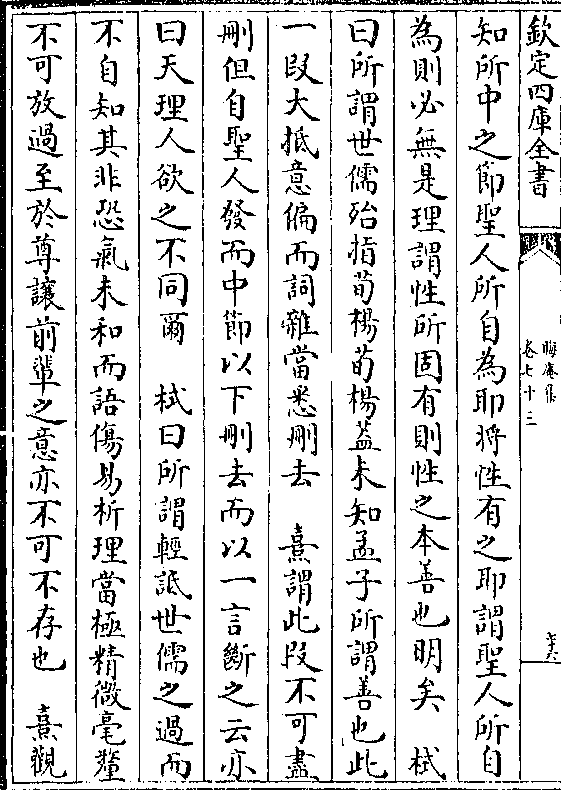 欽定四庫全書
晦庵集
卷七十三
知所中之節聖人所自為耶将性有之耶謂聖人所自
為則必無是理謂性所固有則性之本善也明矣　栻
曰所謂世儒殆指荀楊荀楊蓋未知孟子所謂善也此
一段大抵意偏而詞雜當悉刪去　熹謂此段不可盡
刪但自聖人發而中節以下刪去而以一言斷之云亦
曰天理人欲之不同爾　栻曰所謂輕詆世儒之過而
不自知其非恐氣未和而語傷易析理當極精微毫釐
不可放過至於尊讓前輩之意亦不可不存也　熹觀